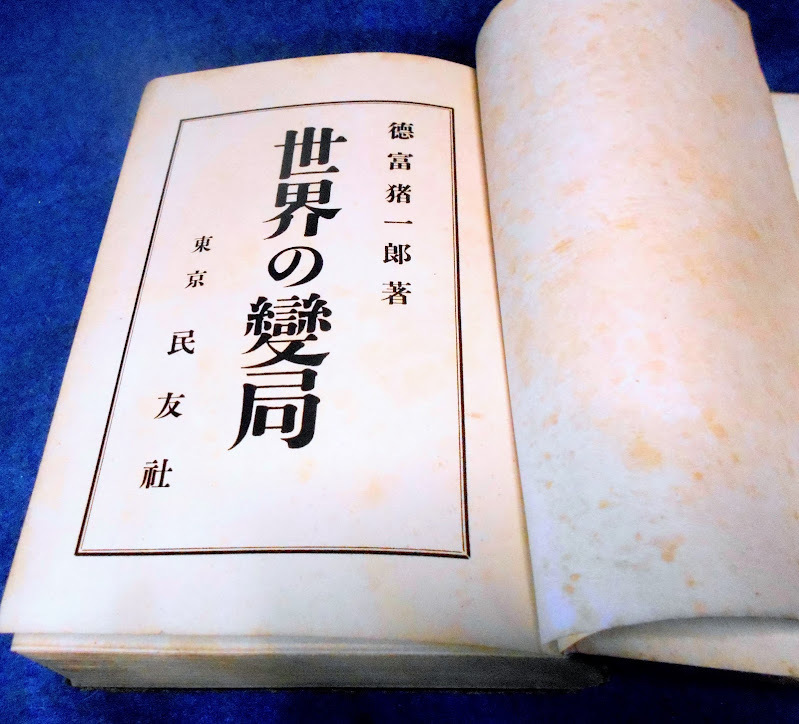 德富猪一郎著
世界の變局
東京 民友社